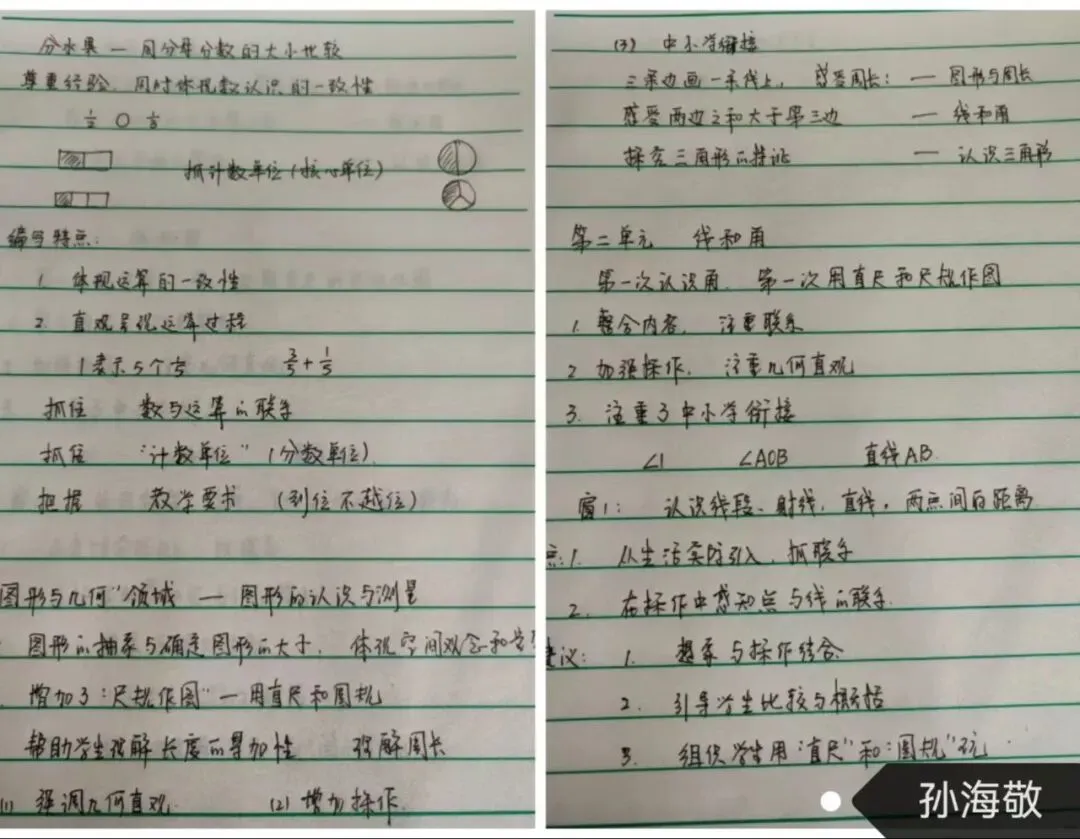 分水果 — 同分母分数的大小比较
尊重经验. 同时体现数认识的一致性
抓计数单位(核心单位)
编写特点:
1. 体现运算的一致性
2. 直观呈现运算过程
1表示5个1/5 3/5+1/5
抓住 数与运算的联系
抓住 "计数单位"(分数单位).
把握 教学要求 (到位不越位)
图形与几何"领域 — 图形的认识与测量
图形的抽象与确定图形的大小. 体现空间观念和
增加了"尺规作图" — 用直尺和圆规
帮助学生理解长度的可加性 理解周长
(1) 强调几何直观 (2) 增加操作.
(3) 中小学衔接
三条边画一条线上, 感受周长: — 图形与周长
感受两边之和大于第三边 — 线和角
探究三角形的特征 — 认识三角形
第二单元 线和角
第一次认识角. 第一次用直尺和尺规作图
1. 整合内容, 注重联系
2 加强操作, 注重几何直观
3. 注重了中小学衔接
∠1 ∠AOB 直线AB.
窗1: 认识线段、射线, 直线, 两点间的距离
点:1. 从生活实际引入, 抓联系
2. 在操作中感知点与线的联系.
建议: 1. 想象与操作结合
2. 引导学生比较与概括
3. 组织学生用"直尺"和"圆规"玩.
孙海敬